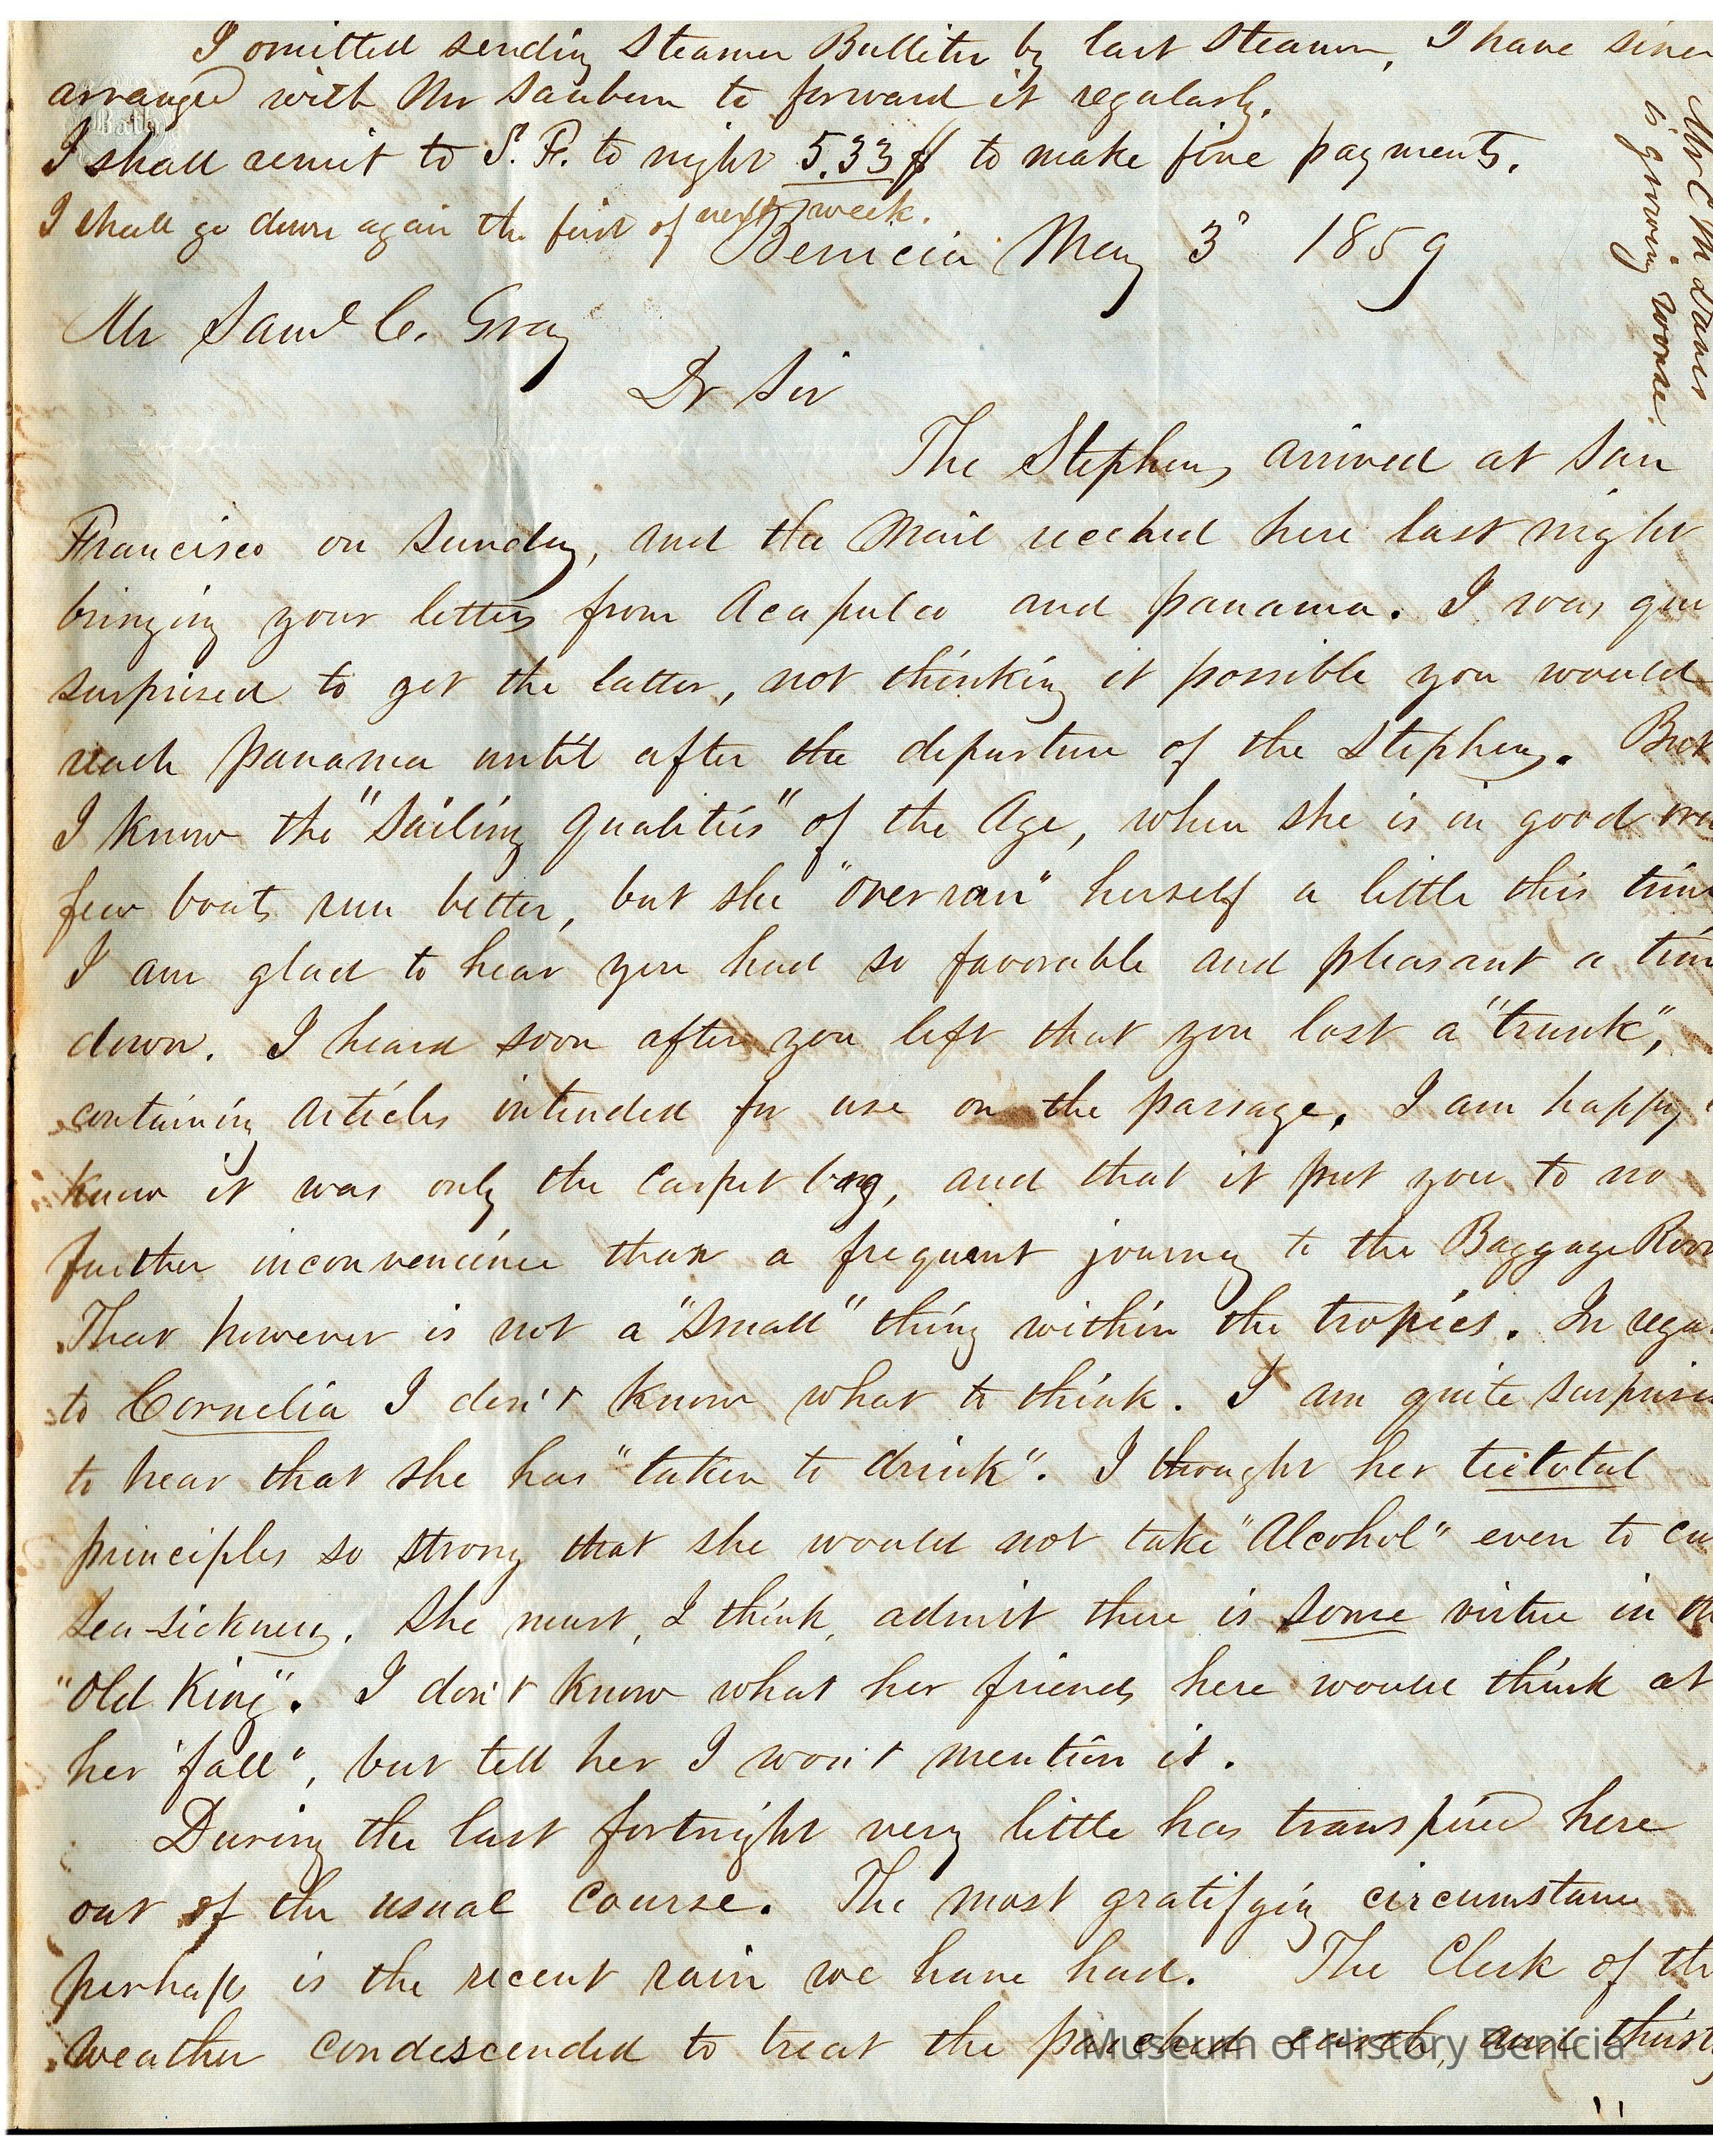 I omitted sending Steamer Bulletin by last Steamer, I have since
arranged with Mr Sanborn to forward it regularly.
Bath
I shall remit to S. F. to night 533 to make five payments.
I shall go down again the first of next week.
Benicia May 3d 1859
Mr Saml C. Gray
Dr Sir
The Stephens arrived at San
Francisco on Sunday, and the Mail reached here last night
bringing your letters from Acapulco and panama. I was
surprised to get the latter, not thinking it possible you would
reach panama until after the departure of the Stephens. But
I know the "Sailing Qualities" of the Age, when she is in good
few boats run better, but she "over ran" herself a little this time
I am glad to hear you had so favorable and pleasant a time
down. I heard soon after you left that you lost a "trunk",
containing articles intended for use on the passage. I am happy
know it was only the Carpet bag, and that it put you to no
further inconvenience than a frequent journey to the Baggage Room
That however is not a "small" thing within the tropics. In rega
to Cornelia I don't know what to think. I am quite surpris
to hear that she has "taken to drink". I thought her teetotal
principles so strong that she would not take "Alcohol" even to cu
sea-sickness. She must, I think, admit there is some virtue in th
"Old King". I don't know what her friends here would think at
her "fall", but tell her I won't mention it.
During the last fortnight very little has transpired here
out of the usual course. The most gratifying circumstance
perhaps is the recent rain we have had. The Clerk of th
weather condescended to treat the parched earth, and thirsty
Mrs C M Davis
is growing worse.
Museum of History Benicia